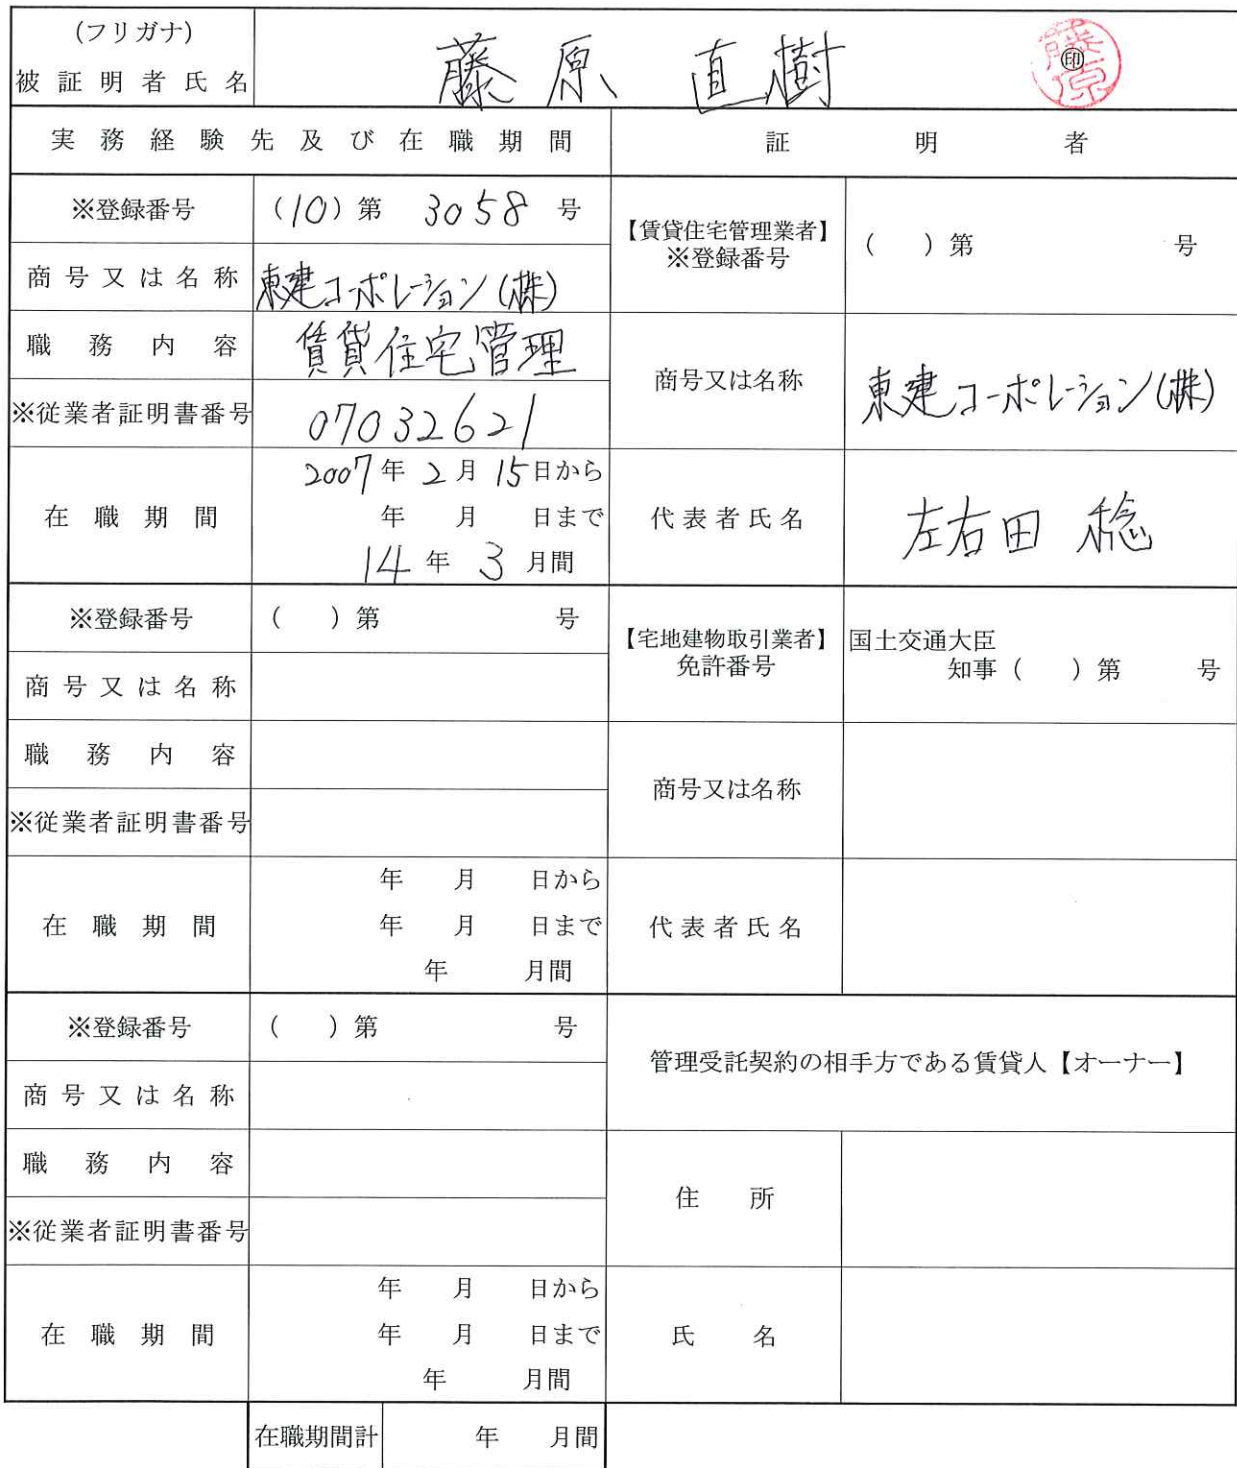 (フリガナ)
被証明者氏名 藤原 直樹 ㊞ 藤原
実務経験先及び在職期間 証明者
※登録番号 (10)第 3058 号 【賃貸住宅管理業者】※登録番号 ( )第 号
商号又は名称 東建コーポレーション(株)
職務内容 賃貸住宅管理 商号又は名称 東建コーポレーション(株)
※従業者証明書番号 07032621
在職期間 2007年2月15日から
年 月 日まで
14年 3月間
代表者氏名 左右田 稔
※登録番号 ( )第 号 【宅地建物取引業者】免許番号 国土交通大臣
知事( )第 号
商号又は名称
職務内容 商号又は名称
※従業者証明書番号
在職期間 年 月 日から
年 月 日まで
年 月間
代表者氏名
※登録番号 ( )第 号 管理受託契約の相手方である賃貸人【オーナー】
商号又は名称
職務内容 住所
※従業者証明書番号
在職期間 年 月 日から
年 月 日まで
年 月間
氏名
在職期間計 年 月間